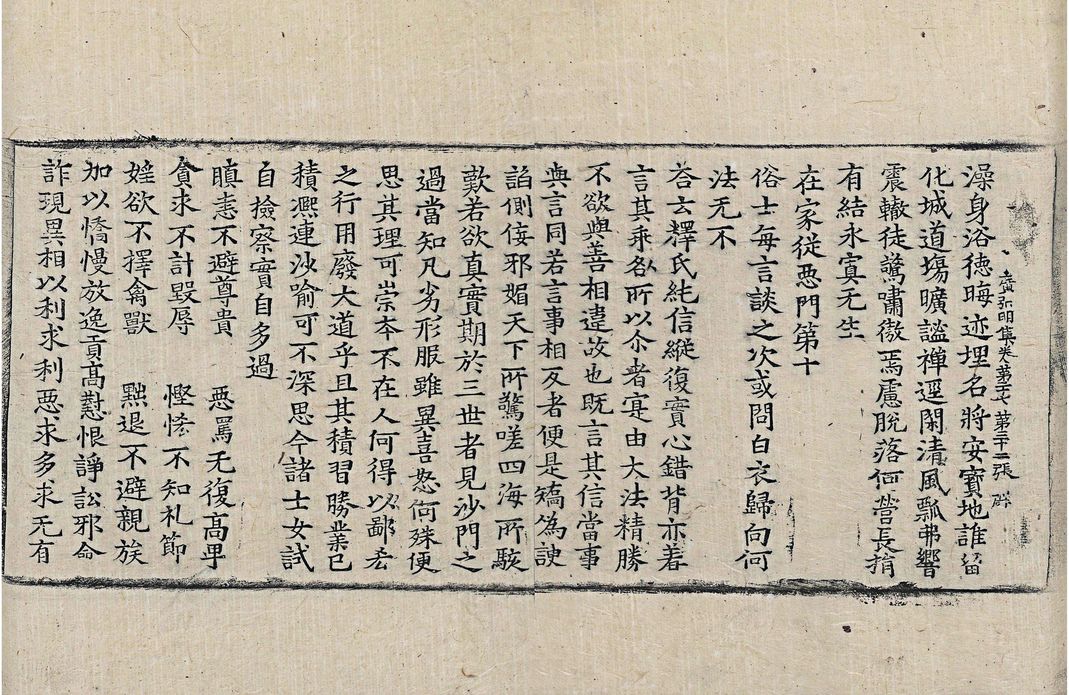 澡身浴德晦迹埋名將安寳地誰留
廣弘明集卷第二十七 第二十二張
化城道場曠謐禪逕閑清風飄弗響
震轍徒驚嘯徼焉慮脫落何營長揃
有結永寘无生
在家從惡門第十
俗士每言談之次或問白衣歸向何
法无不
荅云釋氏純信縱復實心錯背亦着
言其乘名所以尒者寔由大法精勝
不欲與善相違故也旣言其信當事
與言同若言事相反者便是矯爲諛
諂側佞邪媚天下所驚嗟四海所駭
歎若欲真實期於三世者見沙門之
過當知凡劣形服雖異喜怒何殊便
思其理可崇夲不在人何得以鄙㳟
之行用廢大道乎且其積習勝業已
積凞連沙喻可不深思今諸士女試
自撿察實自多過
瞋恚不避尊貴 惡罵无復高卑
貪求不計毀辱 慳悋不知礼節
婬欲不擇禽獸 黜退不避親族
加以憍慢放逸貢高懟恨諍訟邪命
詐現異相以利求利惡求多求无有